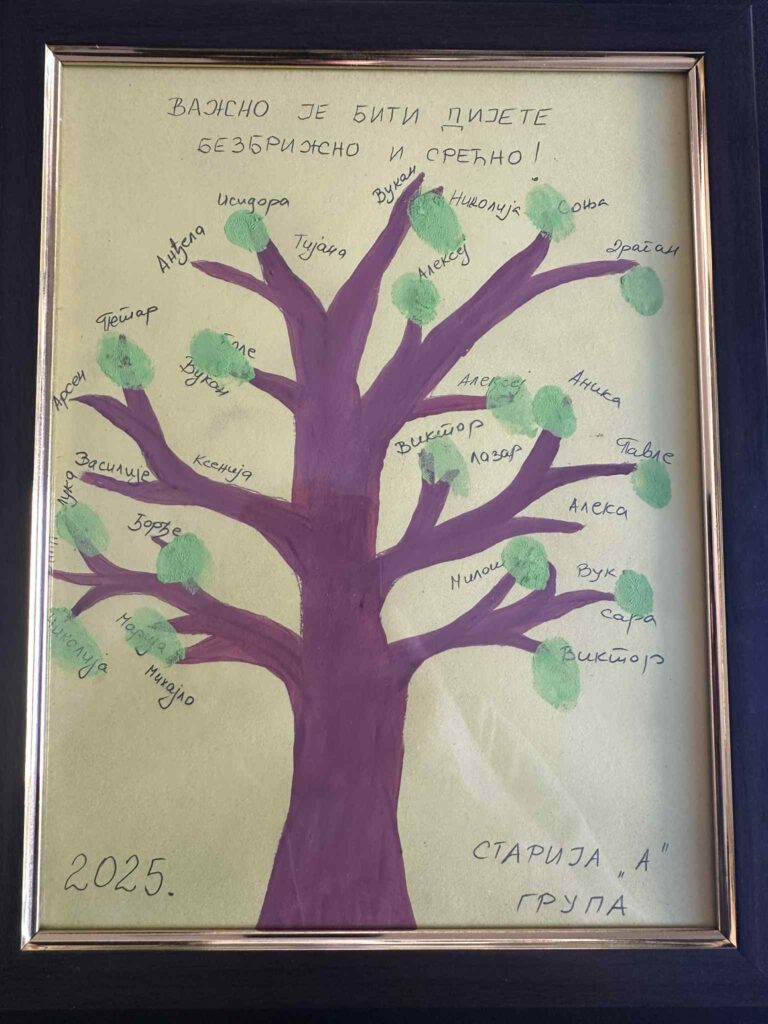 ВАЖНО ЈЕ БИТИ ДИЈЕТЕ
БЕЗБРИЖНО И СРЕЋНО!
Вукан
Николија
Исидора
Соња
Анђела
Тијана
Драган
Алексеј
Петар
Вукан
Арсен
Алексеј
Аника
Виктор
Лазар
Василије
Ксенија
Павле
Лука
Алекса
Ђорђе
Милош
Вук
Сара
Николија
Марија
Михајло
Виктор
2025.
СТАРИЈА „А"
ГРУПА